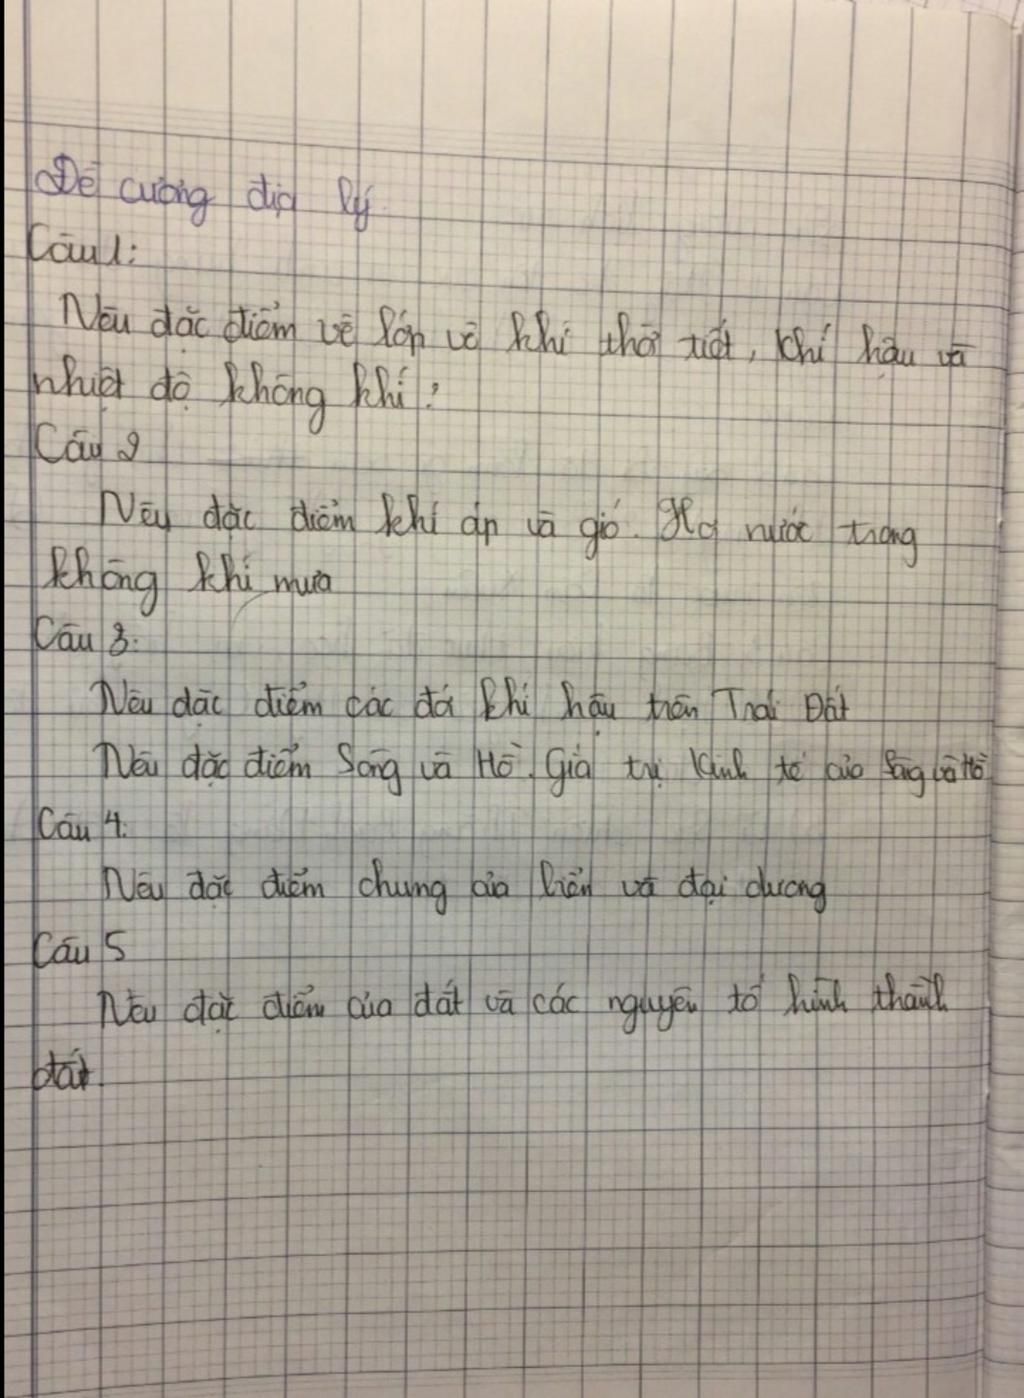 Đề cương địa lý
Câu 1:
Nêu đặc điểm về lớp vỏ khí thời tiết, khí hậu và
nhiệt độ không khí?
Câu 2
Nêu đặc điểm khí áp và gió. Hơi nước trong
không khí mưa
Câu 3:
Nêu đặc điểm các đới khí hậu trên Trái Đất
Nêu đặc điểm Sông và Hồ. Giá trị Kinh tế của Sông và Hồ
Câu 4:
Nêu đặc điểm chung của biển và đại dương
Câu 5
Nêu đặc điểm của đất và các nguyên tố hình thành
đất.